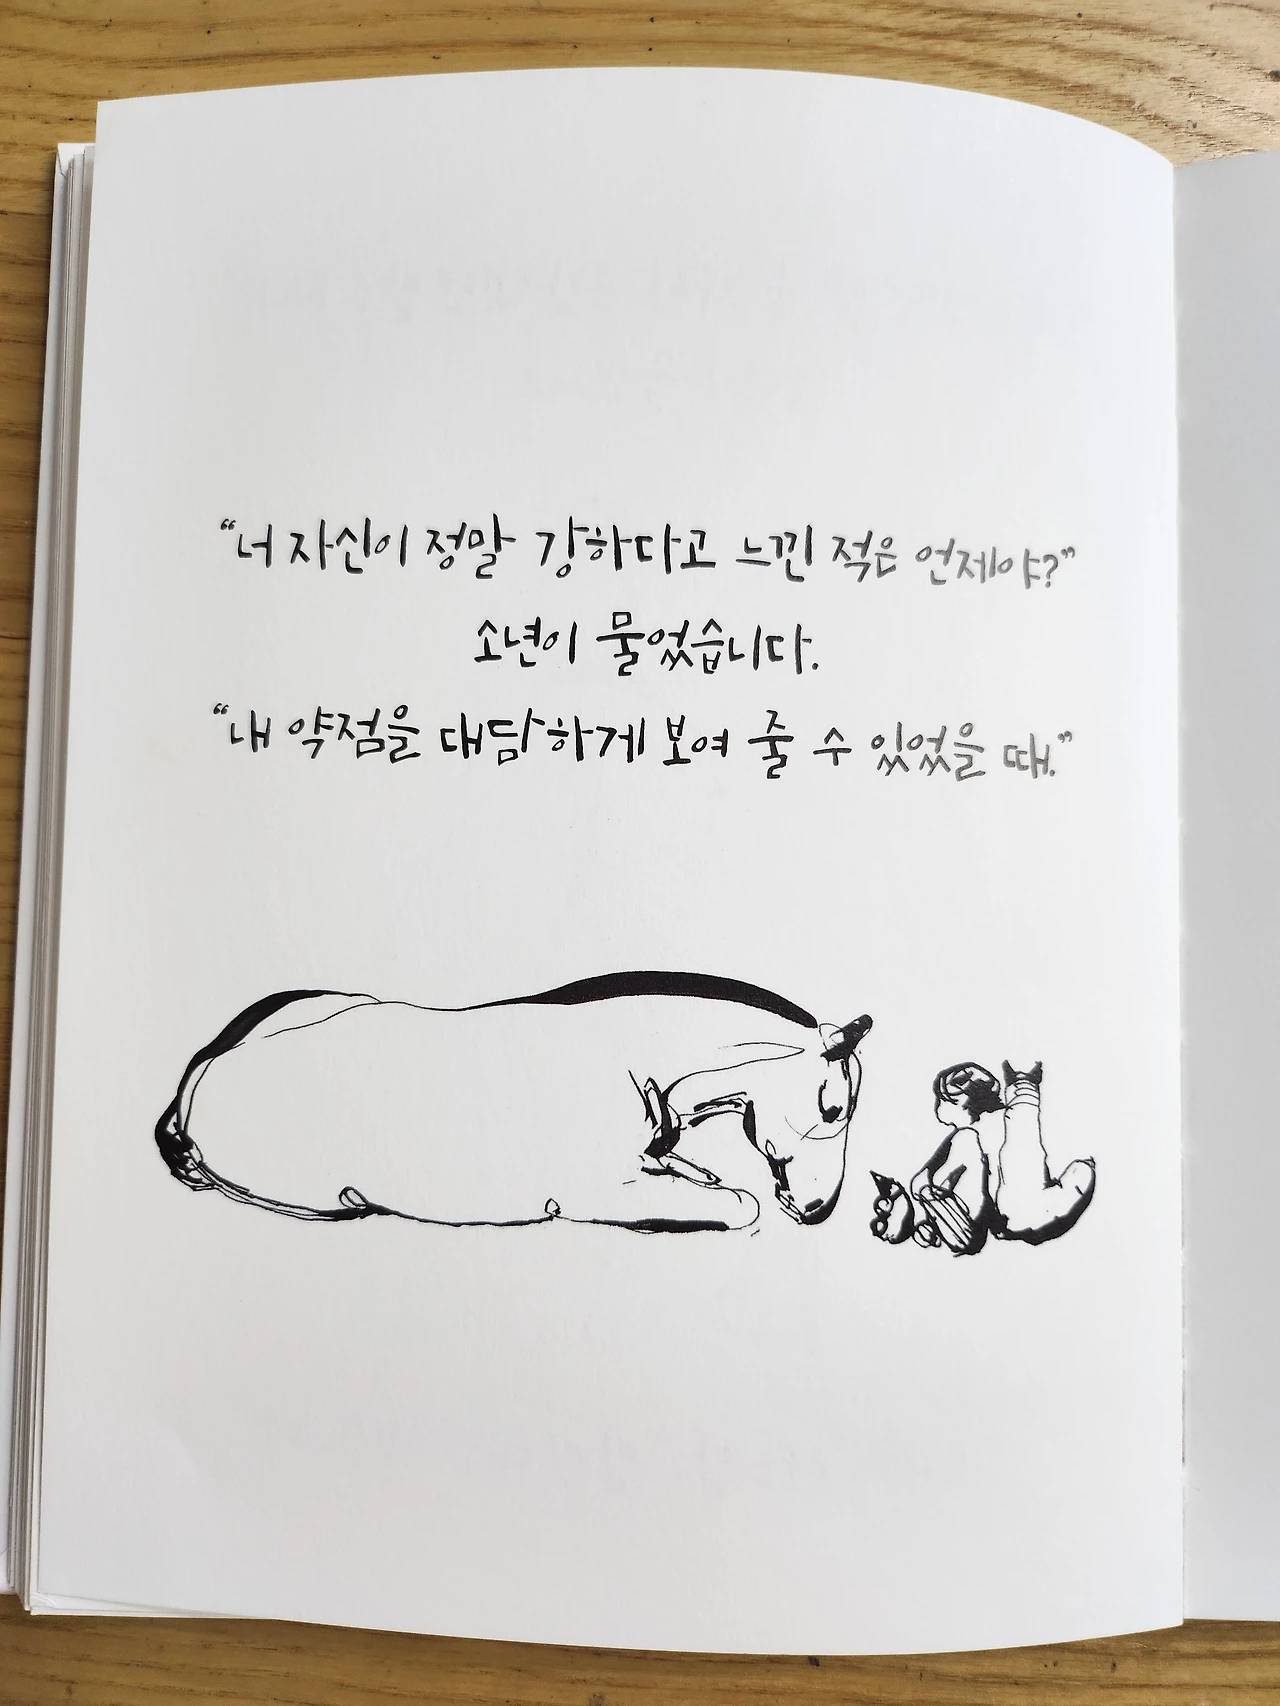 “너 자신이 정말 강하다고 느낀 적은 언제야?”
소년이 물었습니다.
“내 약점을 대담하게 보여 줄 수 있었을 때.”